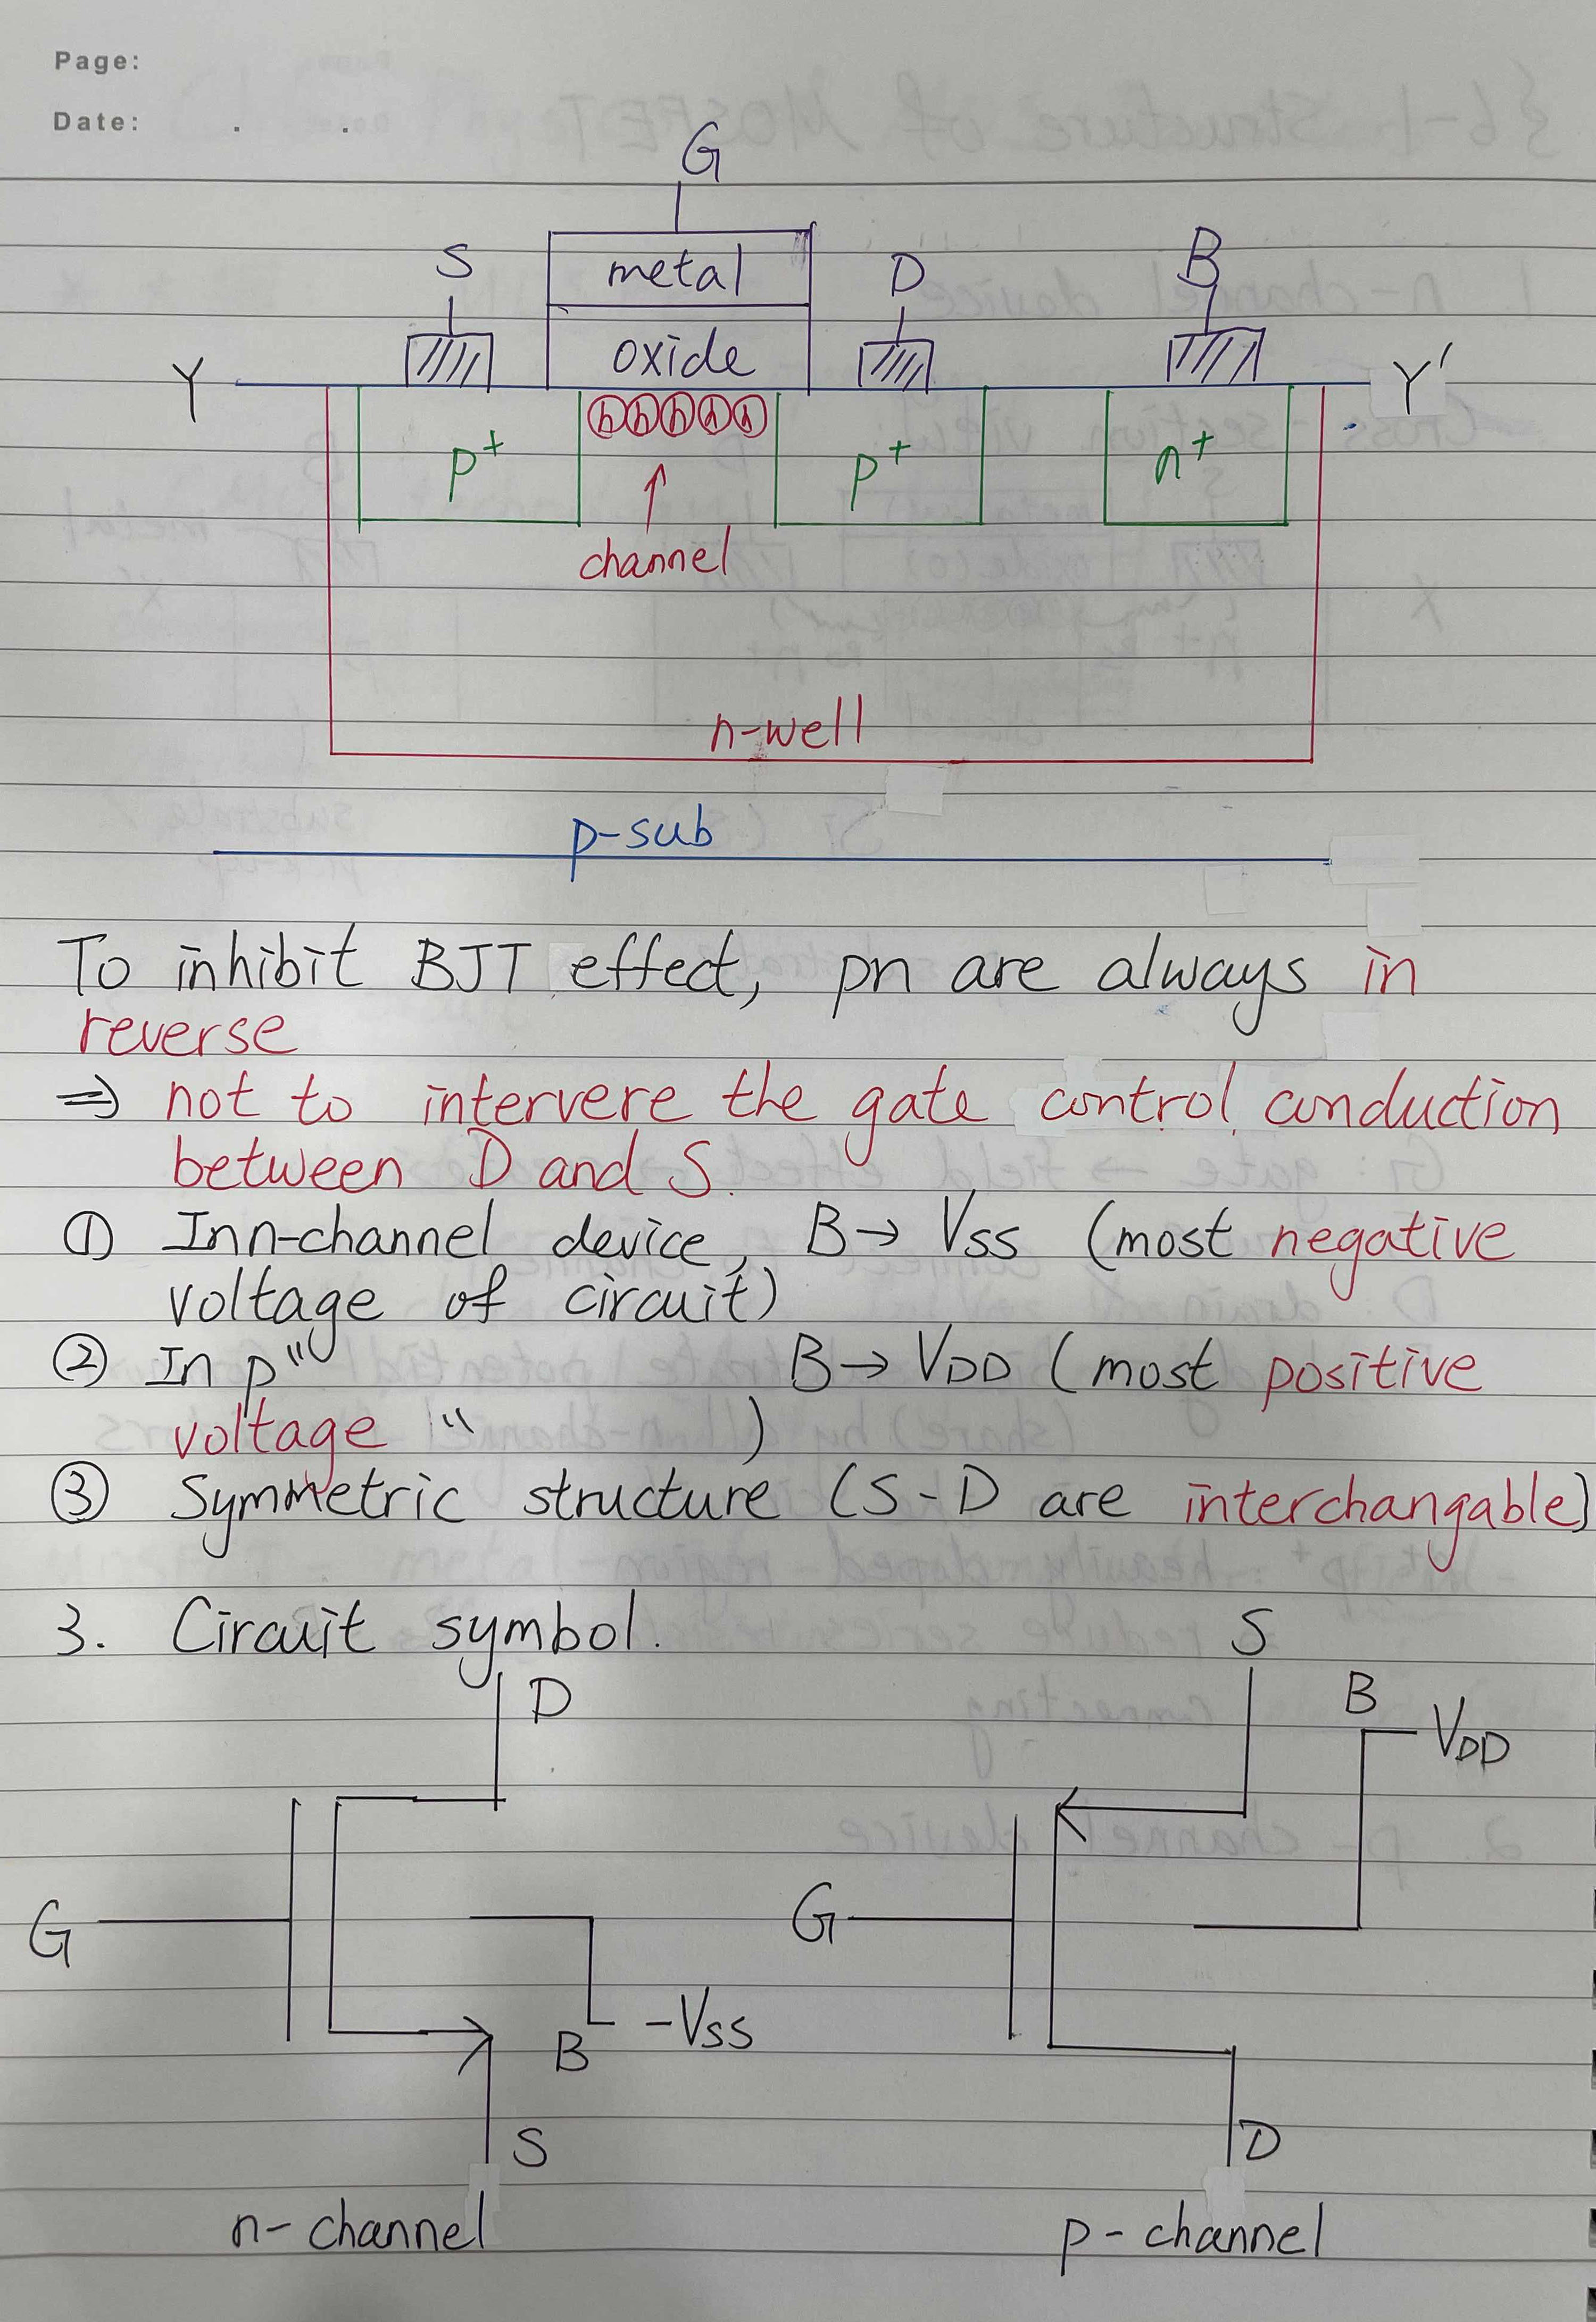 Page:
Date: . .
G
S metal D B
Y oxide Y'
p+ hhhhh p+ n+
↑
channel
n-well
p-sub
To inhibit BJT effect, pn are always in
reverse
⇒ not to intervere the gate control conduction
between D and S.
① In n-channel device, B→ VSS (most negative
voltage of circuit)
② In p " B→ VDD (most positive
voltage " )
③ Symmetric structure (S-D are interchangable)
3. Circuit symbol.
D S B VDD
G G
B -VSS
S D
n-channel p-channel